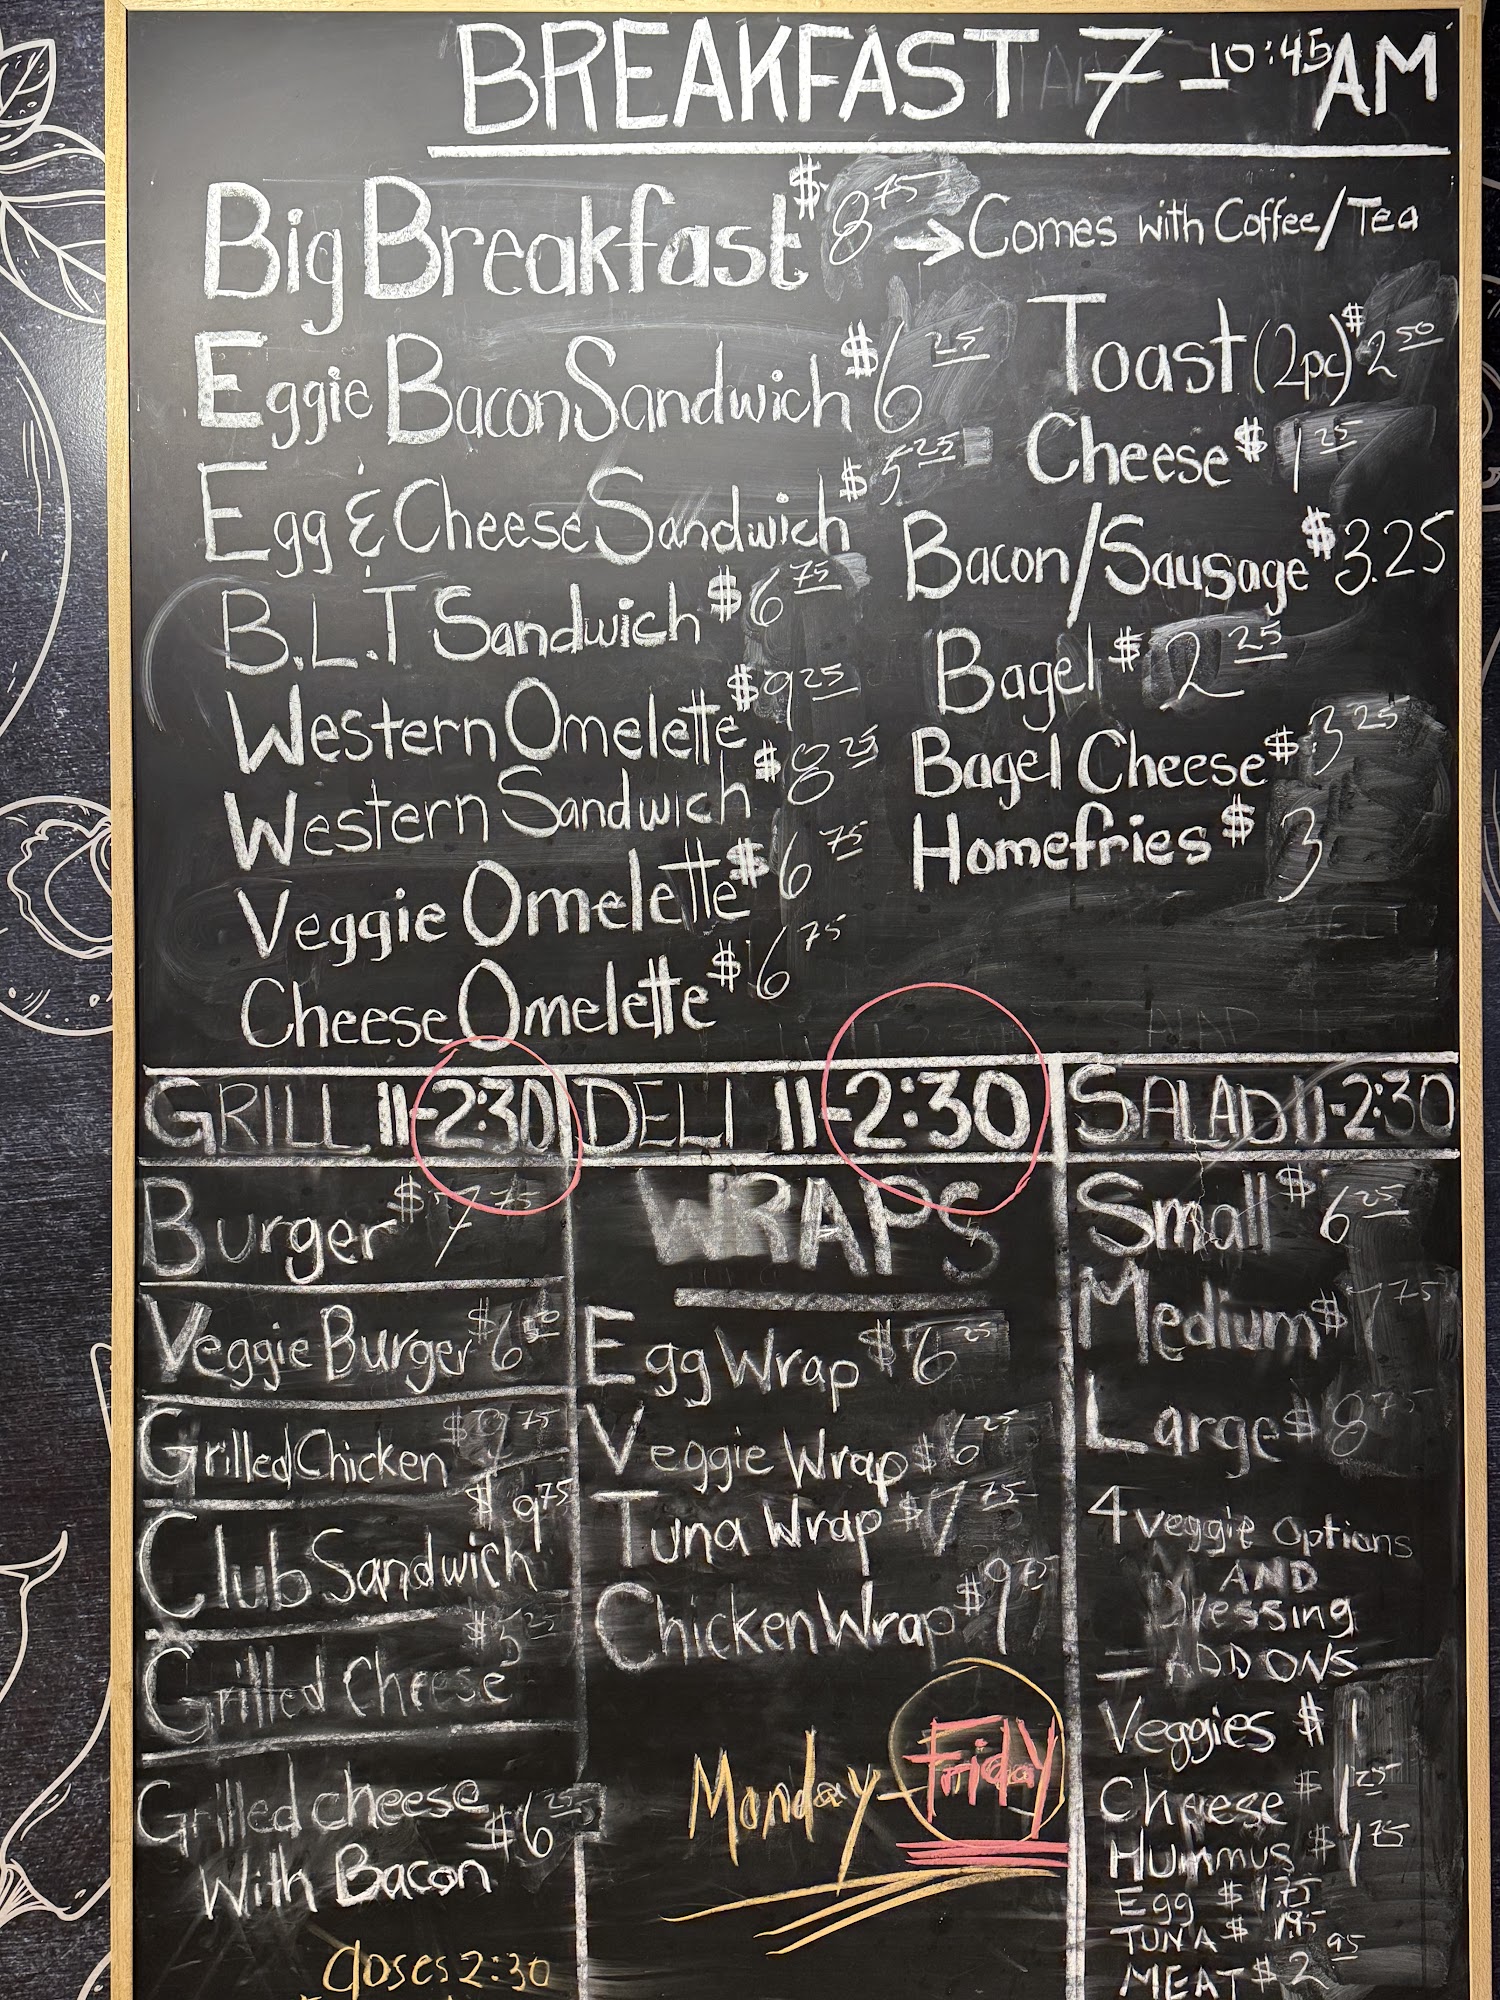 BREAKFAST 7-10:45AM
Big Breakfast $8.75 → Comes with Coffee/Tea
Eggie Bacon Sandwich $6.25
Egg & Cheese Sandwich $5.25
B.L.T Sandwich $6.75
Western Omelette $9.25
Western Sandwich $8.25
Veggie Omelette $6.75
Cheese Omelette $6.75
Toast (2pc) $2.50
Cheese $1.25
Bacon/Sausage $3.25
Bagel $2.25
Bagel Cheese $3.25
Homefries $3
GRILL 11-2:30
Burger $7.75
Veggie Burger $6.50
Grilled Chicken $9.75
Club Sandwich $9.75
Grilled Cheese $5.25
Grilled cheese
With Bacon $6.25
Closes 2:30
DELI 11-2:30
WRAPS
Egg Wrap $6.25
Veggie Wrap $6.25
Tuna Wrap $7.75
Chicken Wrap $9.75
Monday-Friday
SALAD 11-2:30
Small $6.25
Medium $7.75
Large $8.75
4 veggie Options
AND
Dressing
- ADD ONS -
Veggies $1
Cheese $1.25
Hummus $1.75
Egg $1.75
TUNA $
MEAT $2.95